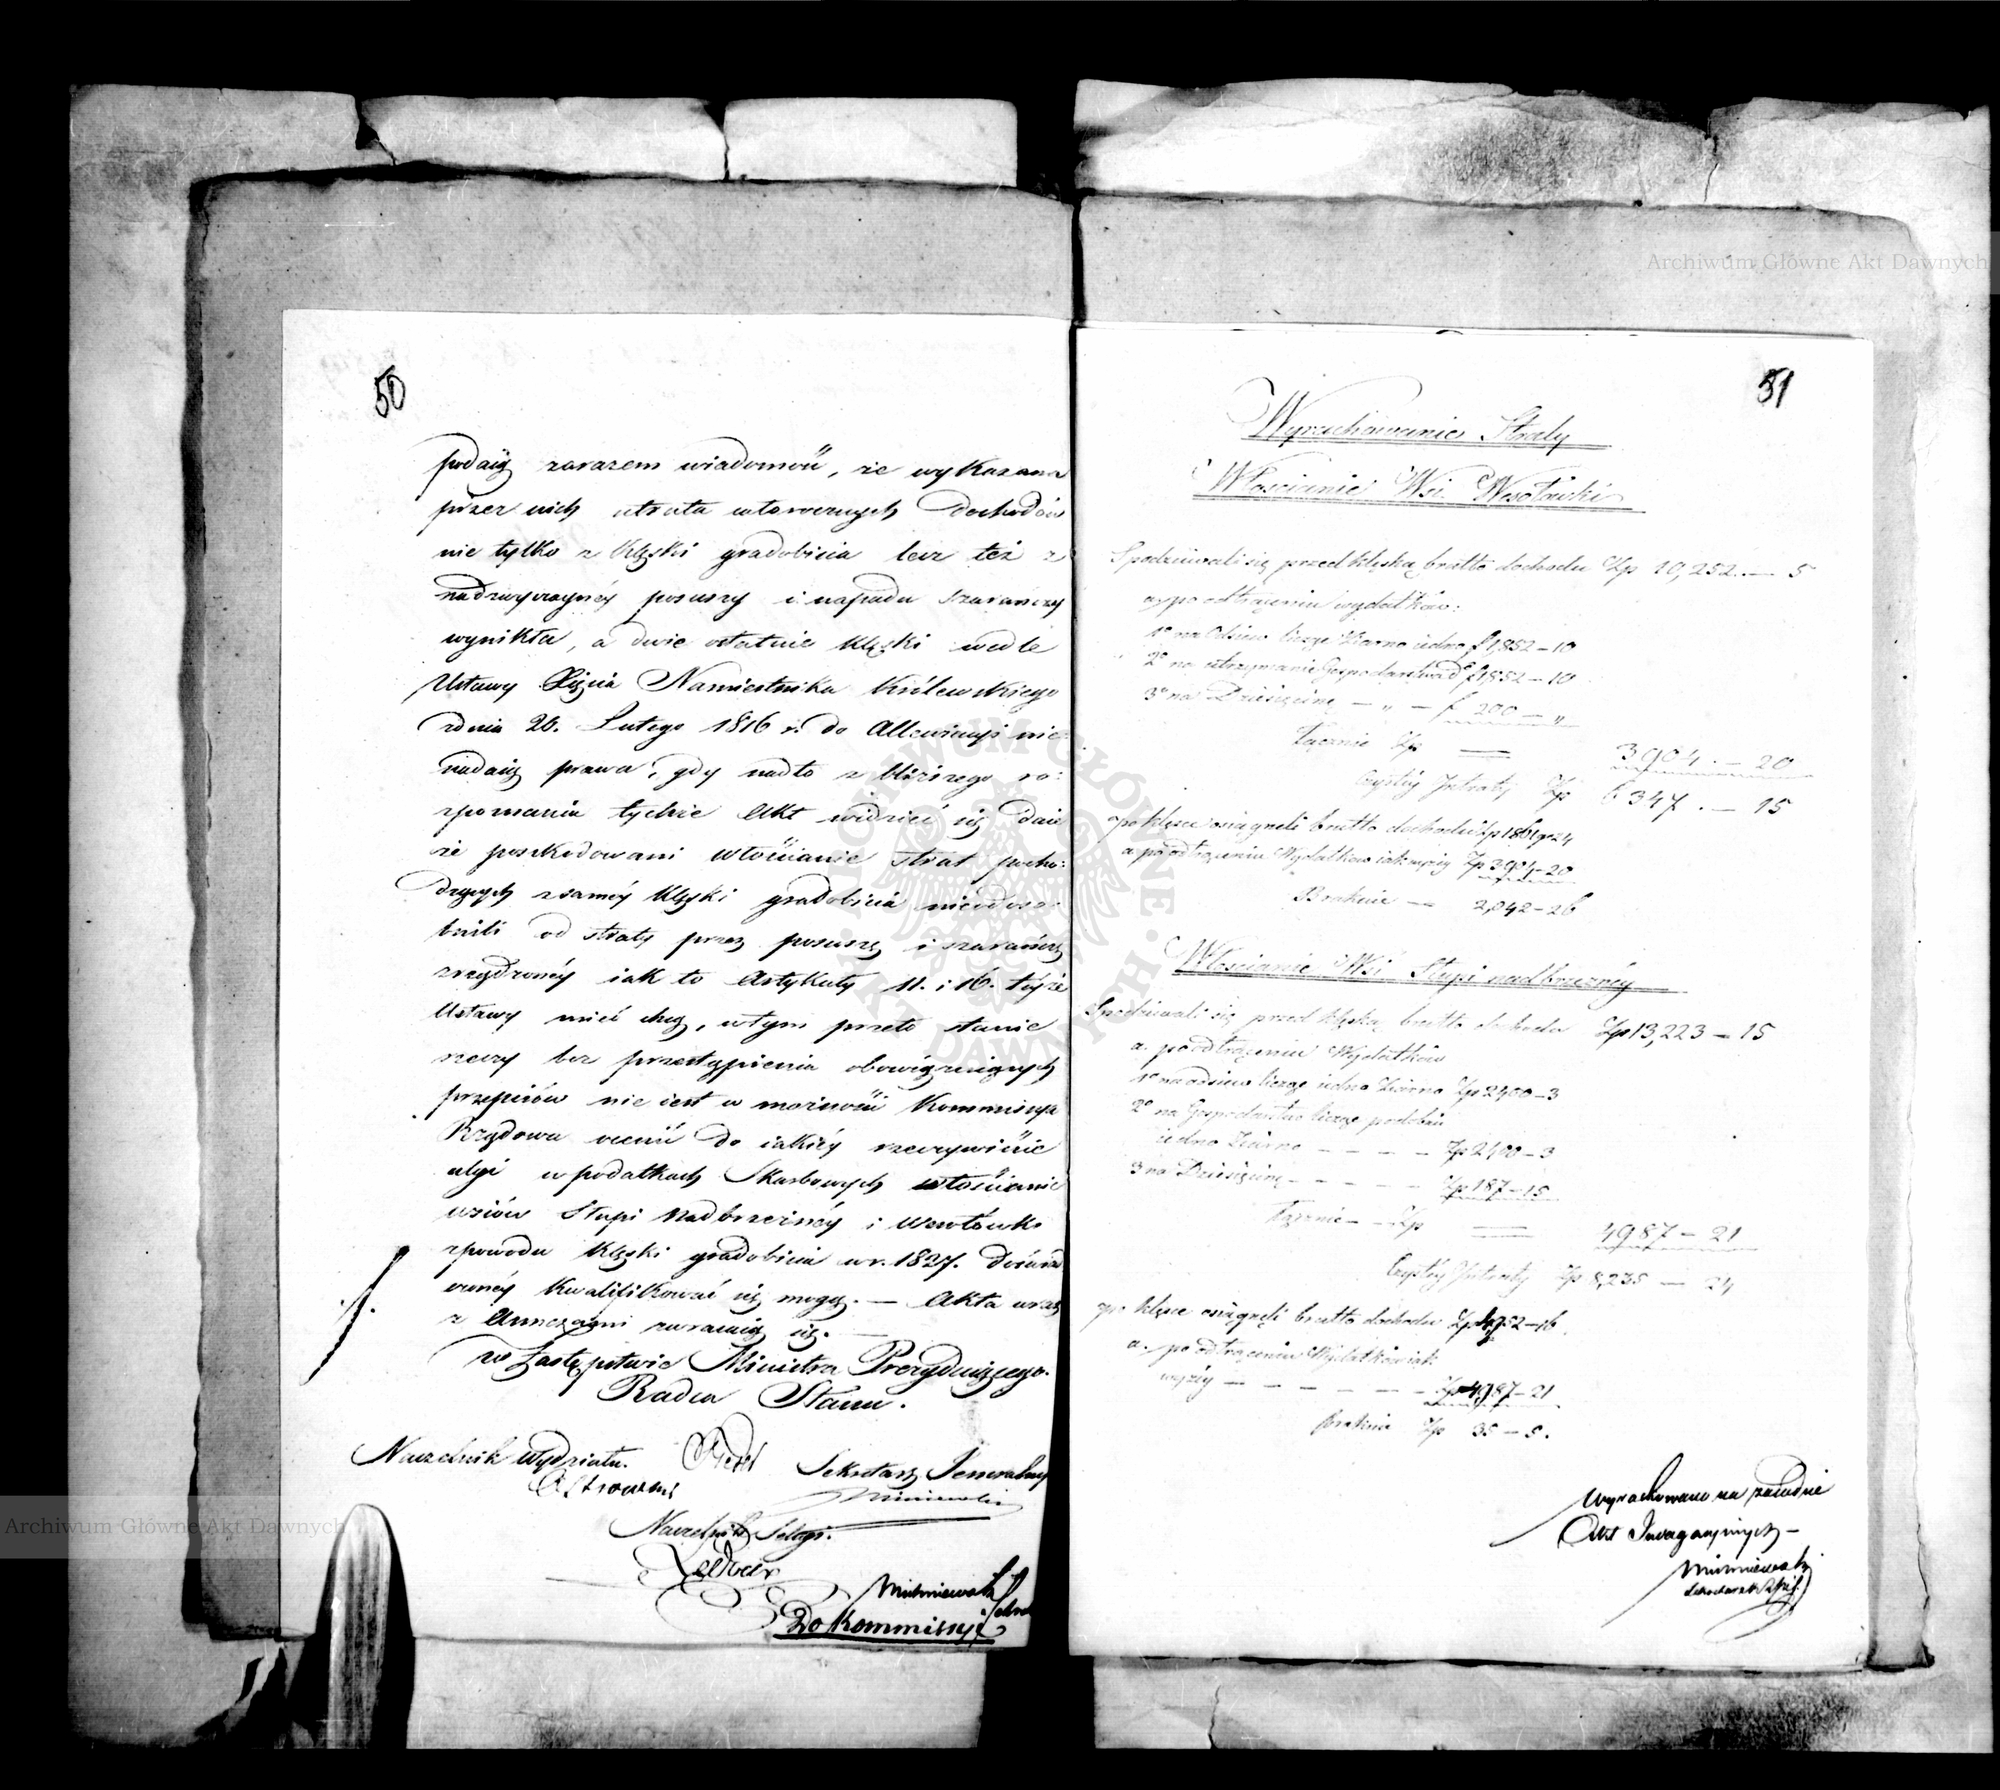 50
podaią zarazem wiadomość, że wykazana
przez nich utrata utworzonych dochodów
nie tylko z klęski gradobicia lecz też z
nadzwyczaynéy posuszy i napadu szarańczy
wynikła, a dwie ostatnie klęski wedle
Ustawy Xięcia Namiestnika Królewskiego
zdnia 20. Lutego 1816 r. do Allewiacyi nie
nadaią prawa, gdy nadto z bliższego ro:
zpoznania tychże Akt widzieć się daie
że poszkodowani Włościanie strat pocho:
dzących z saméy klęski gradobicia nieodoso:
bnili od straty przez posuszę i szarańczę
zrządzonéy iak to Artykuły 11. i 16. téyże
Ustawy mieć chcą, w tym przeto stanie
rzeczy bez przestąpienia obowiązuiących
przepisów nie iest w możności Kommissya
Rządowa ocenić do iakiéy rzeczywiście
ulgi w podatkach Skarbowych włościanie
wsiów Słupi Nadbrzeżnéy i Wesołówki
z powodu klęski gradobicia w r. 1827. doświad
czonéy kwalifikować się mogą. — Akta wraz
z Annexami zwracaią się. —
w Zastępstwie Ministra Prezyduiącego.
Radca Stanu.
Naczelnik Wydziału. Sekretarz Jeneralny
Naczelnik Sekcyi.
Do Kommissyi
51
Wyrachowanie Straty
Włościanie Wsi Wesołówki
Spodziewali się przed klęską brutto dochodu Złp 10,252. — 5
a. po odtrąceniu wydatków:
1° na Odsiew licząc Ziarno iedno f 1,852 — 10
2° na utrzymanie Gospodarstwa d° f 1,852 — 10
3° na Dziesięcinę — „ — f 200 — „
Łącznie Złp = 3904. — 20
Czystéy Intraty Złp 6347. — 15
po klęsce osiągnęli brutto dochodu Złp 1861 gr 24
a po odtrąceniu Wydatków iak wyżéy Złp 3904 — 20
Brakuie — 2,042 — 26
Włościanie Wsi Słupi nadbrzeżnéy
Spodziewali się przed klęską brutto dochodu Złp 13,223 — 15
a. po odtrąceniu Wydatków
1° na odsiew licząc iedno Ziarno Złp 2400 — 3
2° na Gospodarstwo licząc podobnie
iedno Ziarno — — — — Złp 2400 — 3
3 na Dziesięcinę — — — — — Złp 187 — 15
Łącznie — — Złp = 4987 — 21
Czystéy Intraty Złp 8,235 — 24
po klęsce osiągnęli brutto dochodu Złp 4952 — 16
a. po odtrąceniu Wydatków iak
wyżéy — — — — — — Złp 4987 — 21
Brakuie Złp 35 — 5.
Wyrachowano na zasadzie
Akt
Archiwum Główne Akt Dawnych
Archiwum Główne Akt Dawnych
ARCHIWUM GŁÓWNE AKT DAWNYCH